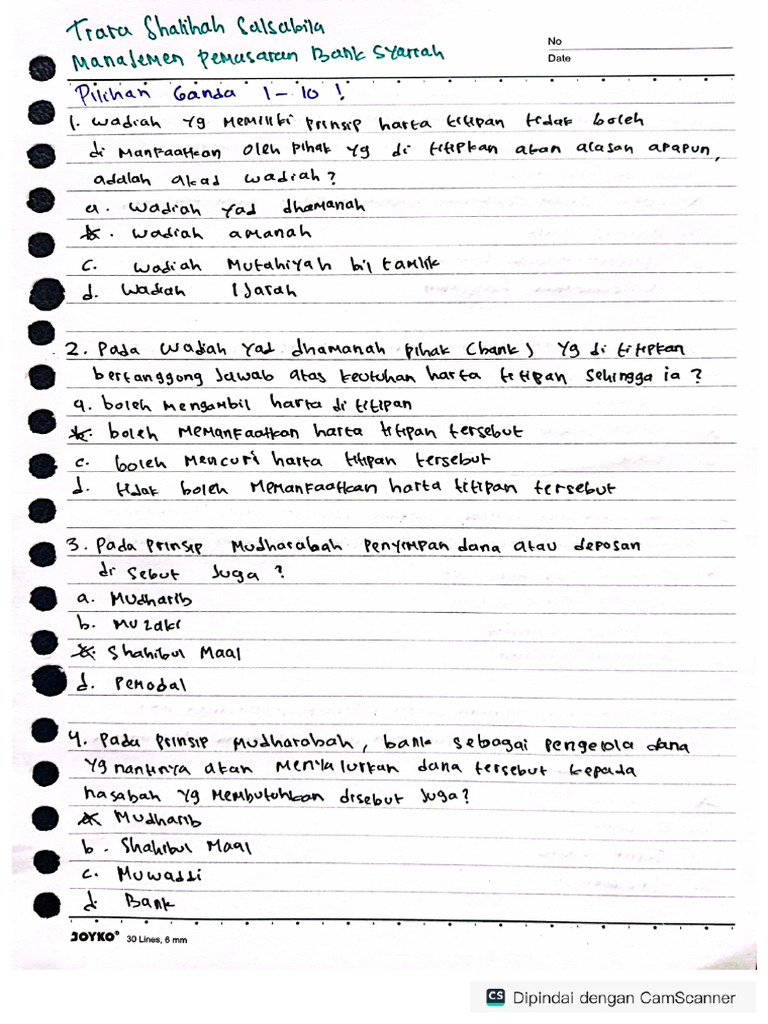 Tiara Shalihah Salsabila
Manajemen Pemasaran Bank Syariah
No
Date
Pilihan Ganda 1 - 10 !
1. Wadiah yg memiliki prinsip harta titipan tidak boleh
di manfaatkan oleh pihak yg di titipkan atan alasan apapun,
adalah akad wadiah ?
a. Wadiah yad dhamanah
b. Wadiah amanah
c. Wadiah Mutahiyah bil tamlik
d. Wadiah Ijarah
2. Pada wadiah yad dhamanah pihak (bank) yg di titipkan
bertanggong jawab atas keutuhan harta titipan sehingga ia ?
a. boleh mengambil harta di titipan
b. boleh memanfaatkan harta titipan tersebut
c. boleh mencuri harta titipan tersebut
d. tidak boleh memanfaatkan harta titipan tersebut
3. Pada prinsip Mudharabah penyimpan dana atau deposan
di sebut juga ?
a. Mudharib
b. Muzaki
c. Shahibul Maal
d. Pemodal
4. Pada prinsip Mudharabah, bank sebagai pengelola dana
yg nantinya akan menyalurkan dana tersebut kepada
nasabah yg membutuhkan disebut juga?
a. Mudharib
b. Shahibul Maal
c. Muwaddi
d. Bank
JOYKO® 30 Lines, 6 mm
CS Dipindai dengan CamScanner